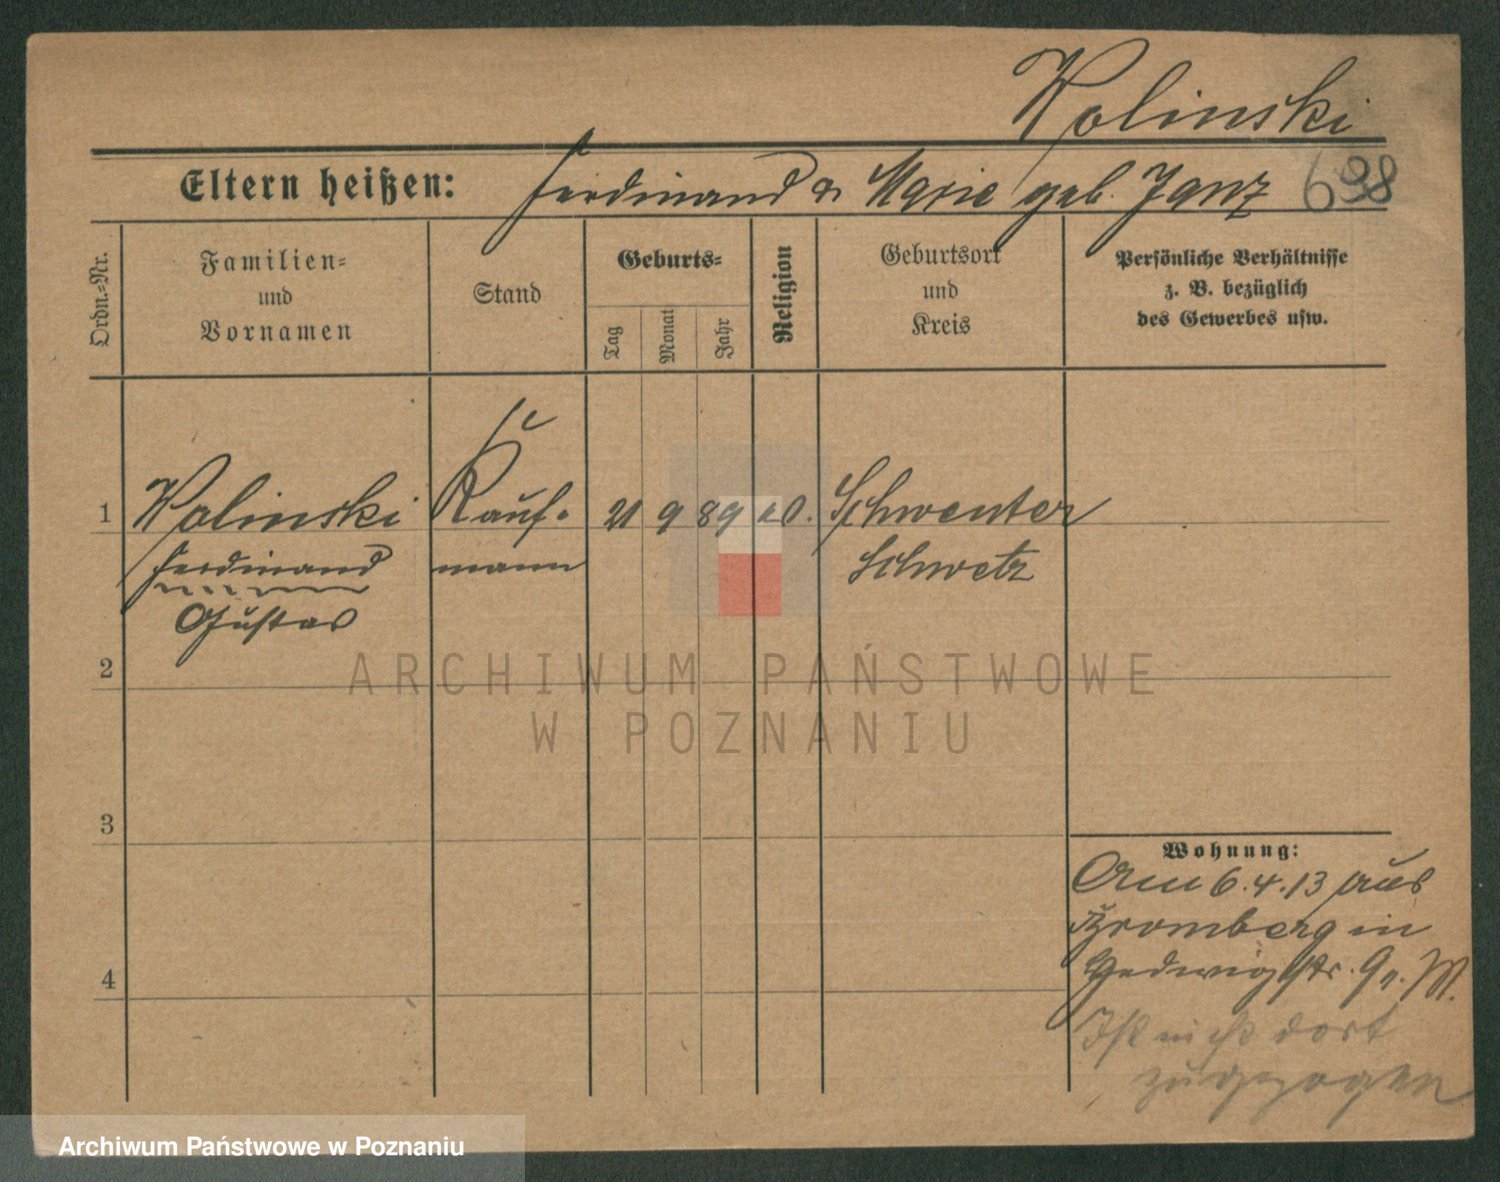 Wolinski
Eltern heißen: Ferdinand u Marie geb. Janz 698
Ordn.-Nr.
Familien-
und
Vornamen
Stand
Geburts-
Tag
Monat
Jahr
Religion
Geburtsort
und
Kreis
Persönliche Verhältnisse
z. B. bezüglich
des Gewerbes usw.
1 Wolinski Kauf- 21 9 89 Schwenten
Ferdinand mann Schwetz
Gustav
2
ARCHIWUM PAŃSTWOWE
W POZNANIU
3
Wohnung:
Am 6.4.13 aus
Bromberg in
Hedwigstr.
4
Ist nicht dort
zugezogen
Archiwum Państwowe w Poznaniu